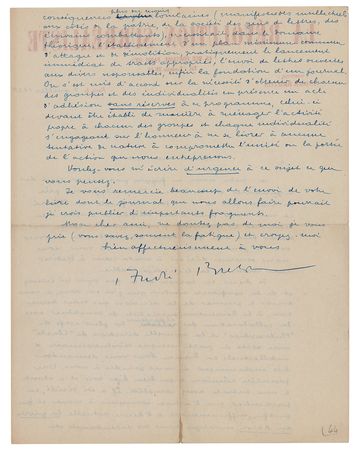 plus ou moins
conséquences lointaines (manifestes intellectuels
aux côtés de la patrie, de la société des gens de lettres, des
écrivains combattants), nécessité, dans le domaine
théorique, l'établissement d'un plan minimum commun
d'attaque et simultané, pratiquement lancement
immédiat de tracts appropriés, l'envoi de lettres ouvertes
aux divers responsables, enfin la fondation d'un journal.
On s'est mis d'accord sur la nécessité d'obtenir de chacun
des groupes et des individualités en présence un acte
d'adhésion sans réserves à ce programme, celui-ci
devant être établi de manière à ménager l'activité
propre à chacun des groupes et chaque individualité
s'engageant sur l'honneur à ne se livrer à aucune
tentative de nature à compromettre l'unité ou la portée
de l'action que nous entreprenons.
Voulez-vous m'écrire d'urgence à ce sujet ce que
vous pensez.
Je vous remercie beaucoup de l'envoi de votre
livre dont le journal que nous allons faire pourrait
je crois publier d'importants fragments.
Mon cher ami, ne doutez pas de moi je vous
prie (vous savez, souvent la fatigue) et croyez-moi
bien affectueusement à vous.
André Breton